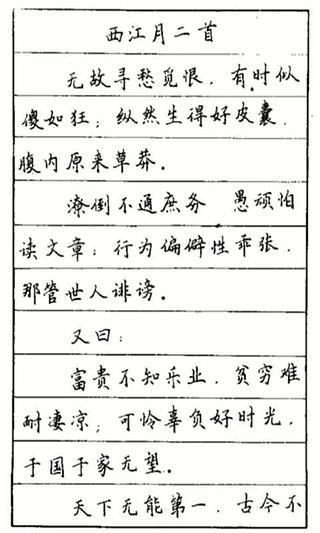 西江月二首
无故寻愁觅恨,有时似
傻如狂;纵然生得好皮囊,
腹内原来草莽。
潦倒不通庶务 愚顽怕
读文章;行为偏僻性乖张,
那管世人诽谤。
又曰:
富贵不知乐业,贫穷难
耐凄凉;可怜辜负好时光,
于国于家无望。
天下无能第一,古今不